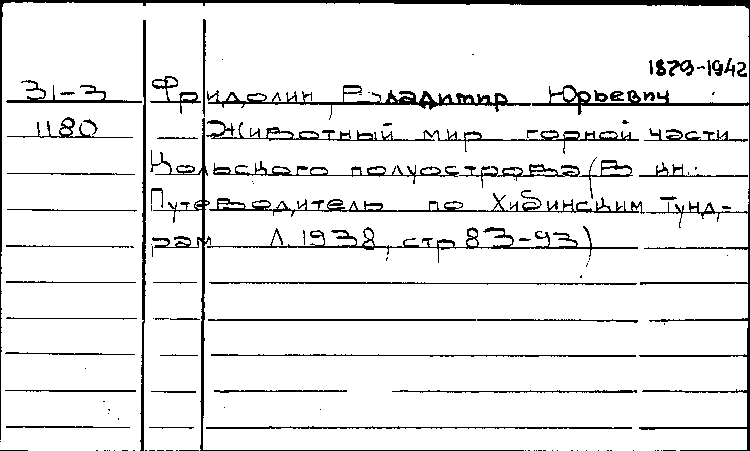 1879-1942
31-3 Фридолин, Владимир Юрьевич
1180 Животный мир горной части
Кольского полуострова (В кн.:
Путеводитель по Хибинским тунд-
рам Л. 1938, стр 83-93)